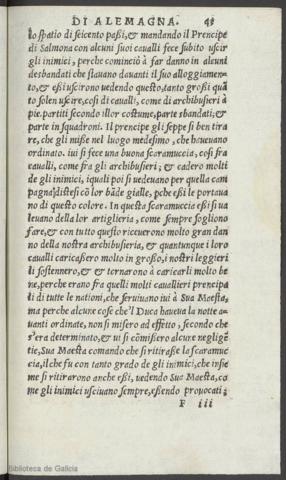 DI ALEMAGNA. 43
lo spatio di seicento passi, & mandando il Prencipe
di Salmona con alcuni suoi caualli fece subito uscir
gli inimici, perche cominciò à far danno in alcuni
desbandati che stauano dauanti il suo alloggiamen-
to, & essi uscirono uedendo questo, tanto grossi quã
to solen uscire, cosi di caualli, come di archibusieri à
pie, partiti secondo illor costume, parte sbandati, &
parte in squadroni. Il prencipe gli seppe si ben tira
re, che gli misse nel luogo medesimo, che haueuano
ordinato. iui si fece una buona scaramuccia, cosi fra
caualli, come fra gli archibusieri; & cadero molti
de gli inimici, iquali poi si uedeuano per quella cam
pagna distesi cõ lor bãde gialle, pche essi le portaua
no di questo colore. In questa scaramuccia essi si ua
leuano della lor artiglieria, come sempre sogliono
fare, & con tutto questo riceuerono molto gran dan
no della nostra archibusieria, & quantunque i loro
caualli caricassero molto in grosso, i nostri leggieri
li sostennero, & & tornarono à caricarli molto be
ne, perche erano fra quelli molti cauallieri prencipa
li di tutte le nationi, che seruiuano iui à Sua Maesta,
ma perche alcune cose che'l Duca haueua la notte a-
uanti ordinate, non si misero ad effetto, secondo che
s'era determinato, & ui si cõmissero alcune neglige̅
tie, Sua Maesta comando che si ritirasse la scaramuc
cia, il che fu con tanto grado de gli inimici, che insie
me si ritirarono anche essi, uedendo Sua Maesta, co
me gli inimici usciuano sempre, essendo prouocati;
F iii
Biblioteca de Galicia